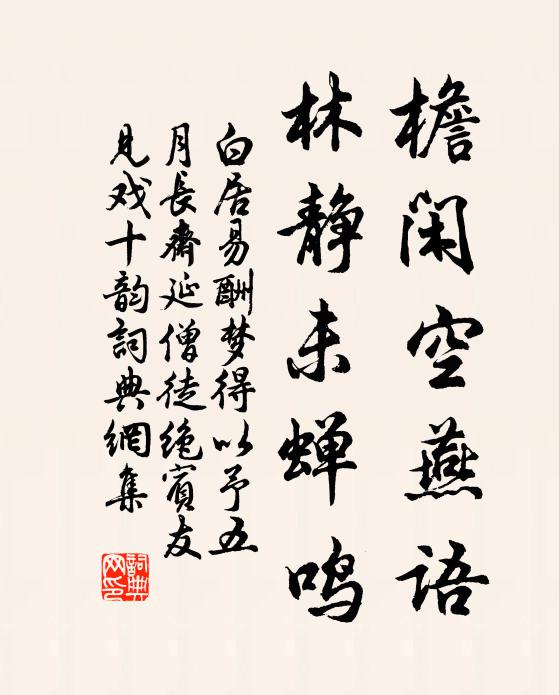 檐闲空燕语
林静未蝉鸣
白居易酬梦得以予五
月長齋延僧徒绝賓友
見戏十韵詞典網集
詞典
网印